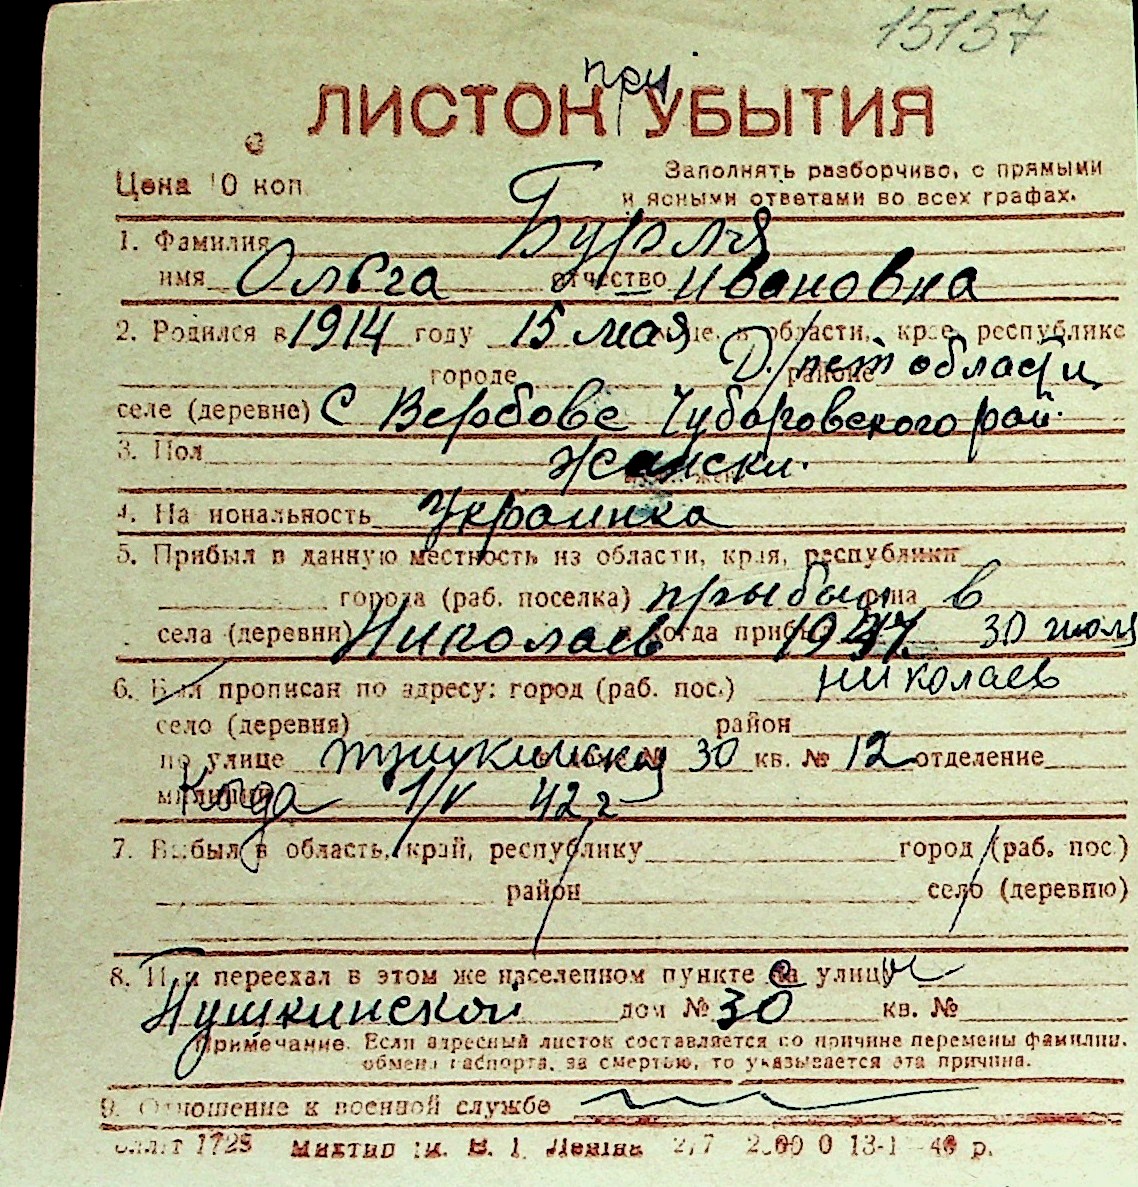 15157
при
ЛИСТОК УБЫТИЯ
Цена 10 коп
Заполнять разборчиво, с прямыми
и ясными ответами во всех графах.
1. Фамилия Бурля
имя Ольга отчество Ивановна
2. Родился в 1914 году 15 мая области, крае, республике
городе районе Д/пет области
селе (деревне) С Вербове Чубаровского рай.
3. Пол женски.
4. Национальность Украинка
5. Прибыл в данную местность из области, края, республики
города (раб. поселка) прибыл в
села (деревни) Николаев и когда прибыл 1947. 30 июля
6. Был прописан по адресу: город (раб. пос.) Николаев
село (деревня) район
по улице Пушкинская № 30 кв. № 12 отделение
милиции Когда 1/V 42 г
7. Выбыл в область, край, республику город (раб. пос.)
район село (деревню)
8. Или переехал в этом же населенном пункте на улицу
Пушкинской дом № 30 кв. №
Примечание. Если адресный листок составляется по причине перемены фамилии,
обмена паспорта, за смертью, то указывается эта причина.
9. Отношение к военной службе
1725 им. В. І. Леніна 2/7